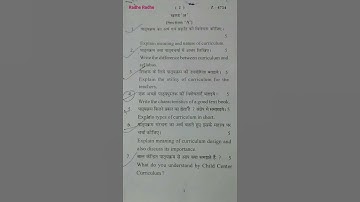 Radhe Radhe
( 2 )
खण्ड 'अ'
(Section 'A')
1. पाठ्यक्रम का अर्थ एवं प्रकृति की विवेचना कीजिए।
5
Explain meaning and nature of curriculum.
2. पाठ्यक्रम तथा पाठ्यचर्या में अन्तर लिखिए। 5
Write the difference between curriculum and
syllabus.
3. शिक्षक के लिये पाठ्यक्रम की उपयोगिता बताइये। 5
Explain the utility of curriculum for the
teachers.
4. एक अच्छी पाठ्यपुस्तक की विशेषताएँ बताइये। 5
Write the characteristics of a good text book.
5. पाठ्यक्रम कितने प्रकार का होता है ? संक्षेप में समझाइये। 5
Explain types of curriculum in short.
6. पाठ्यक्रम संरचना का अर्थ बताते हुए इसके महत्व पर
चर्चा कीजिए। 5
Explain meaning of curriculum design and
also discuss its importance.
7. बाल केन्द्रित पाठ्यक्रम से आप क्या समझते हैं ? 5
What do you understand by Child Center
Curriculum ?